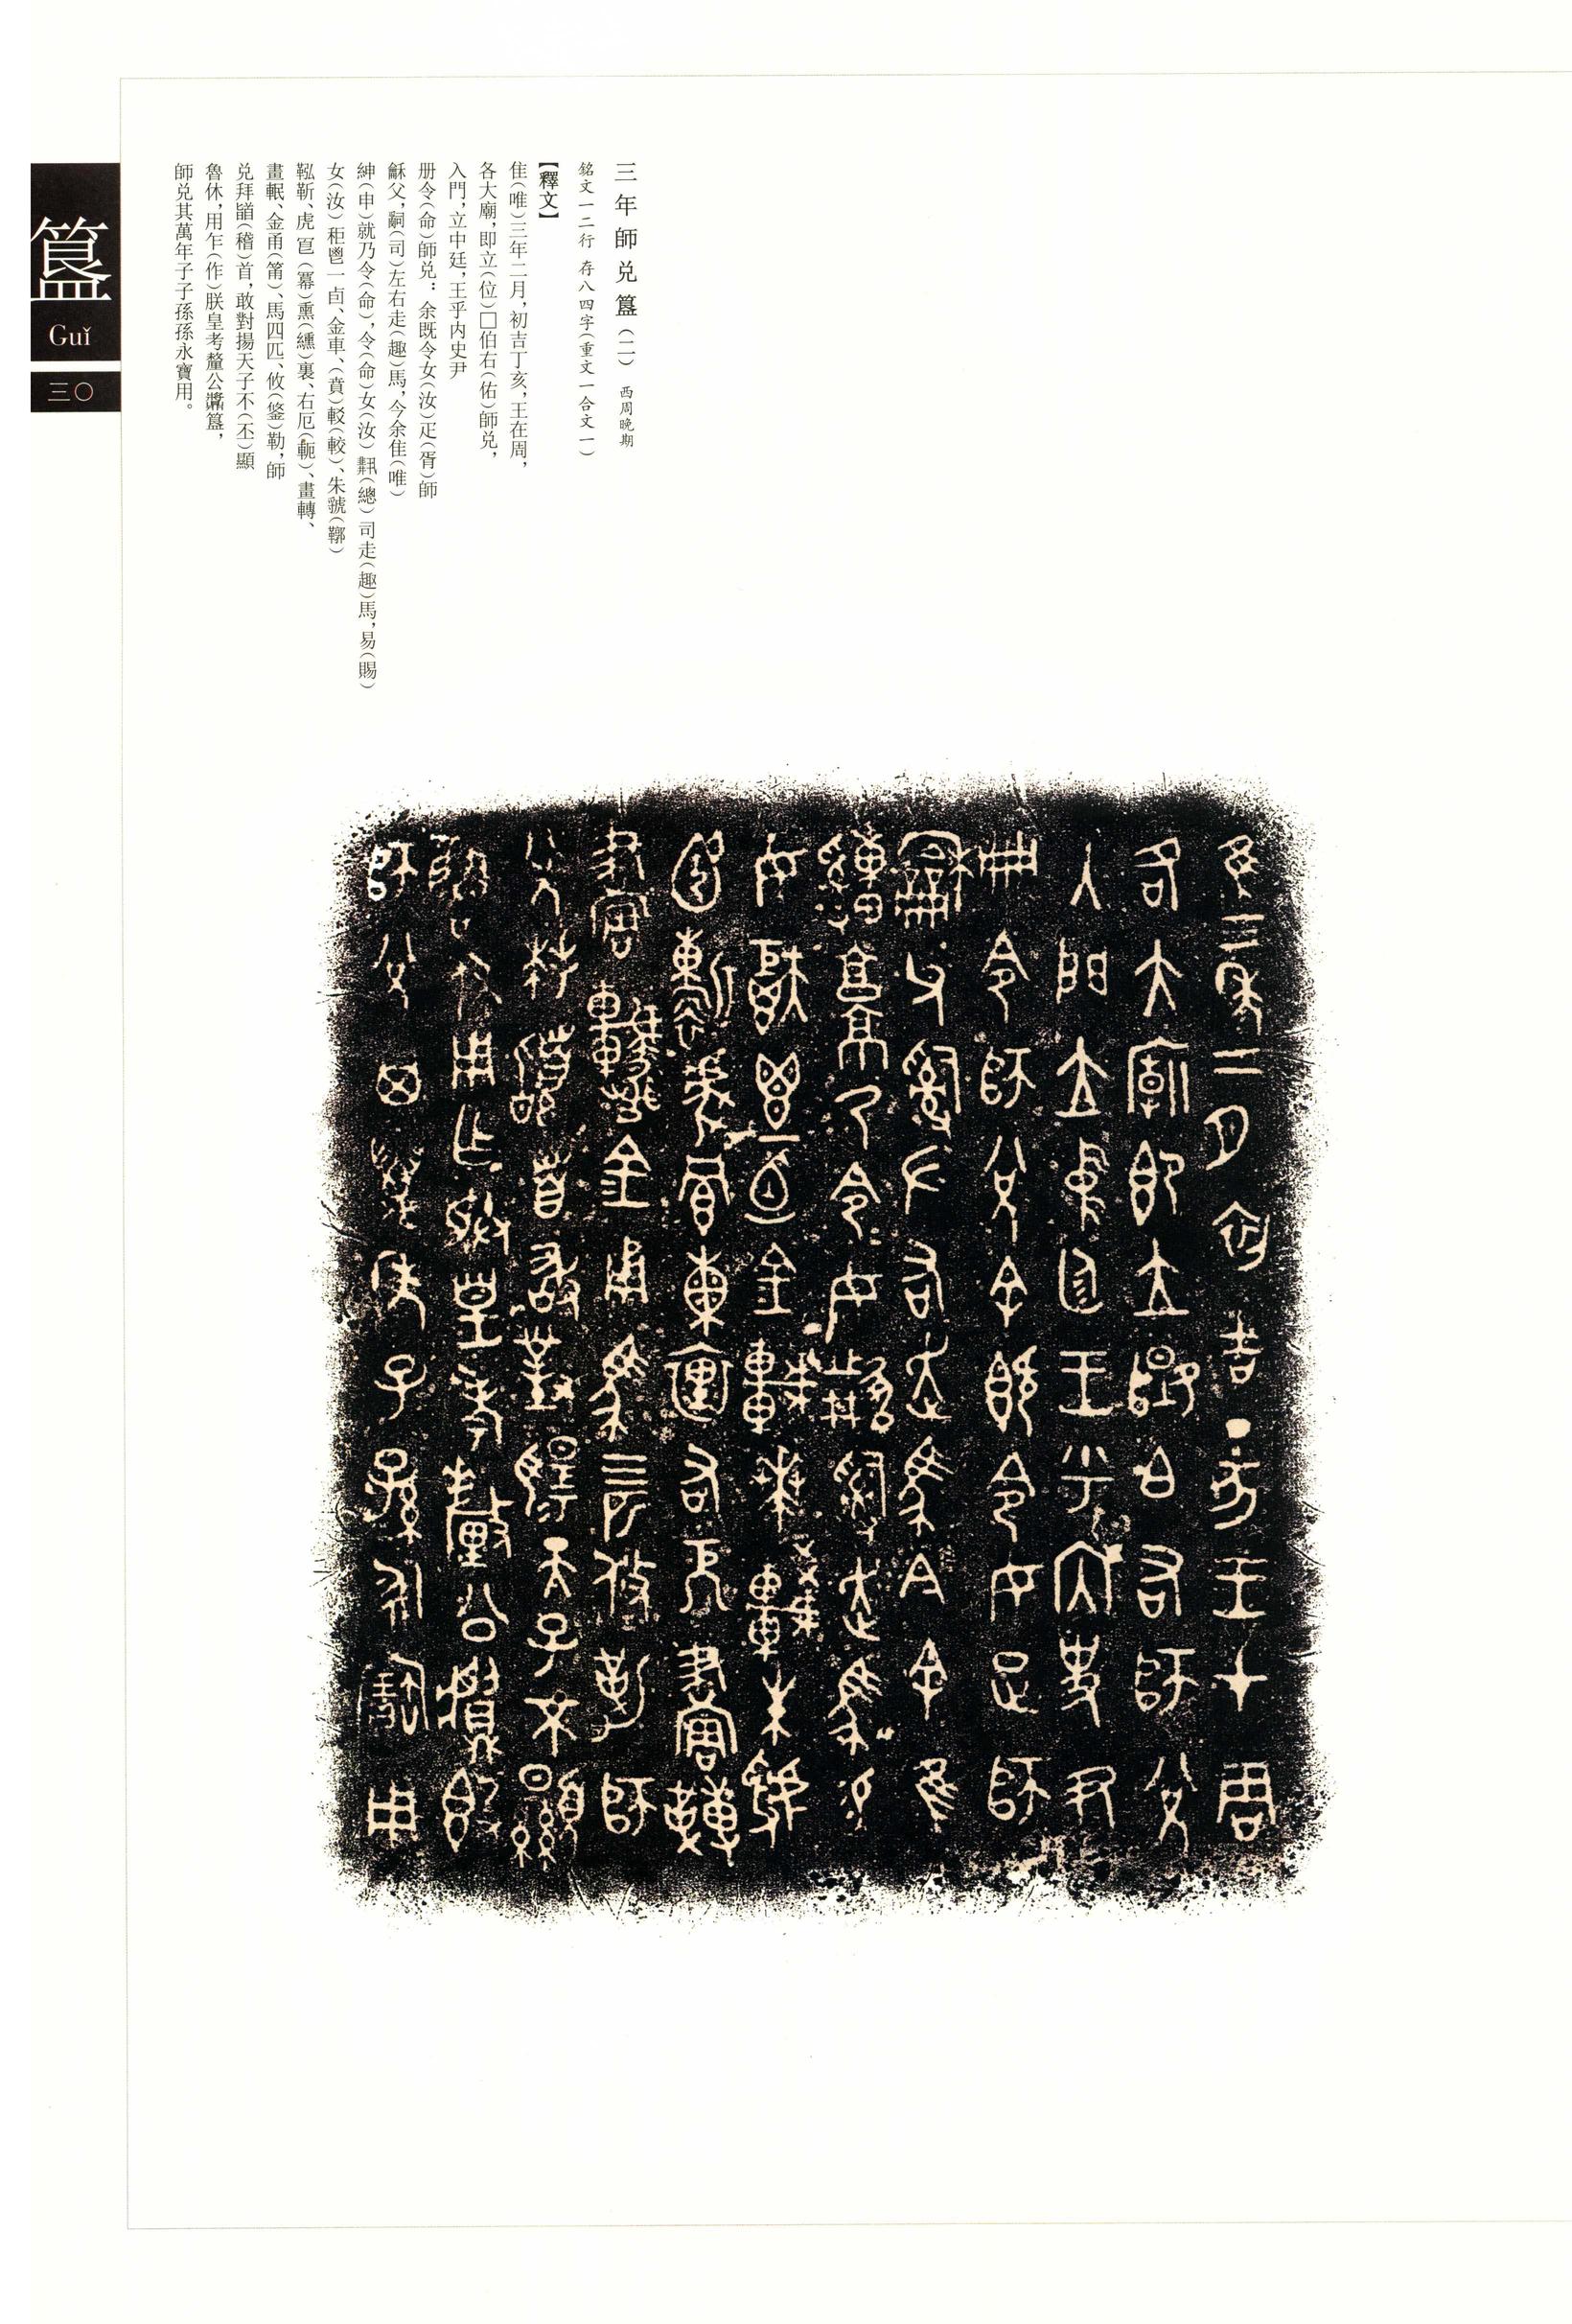 三年師兌簋(二) 西周晚期
銘文一二行 存八四字(重文一合文一)
【釋文】
隹(唯)三年二月,初吉丁亥,王在周,
各大廟,即立(位)□伯右(佑)師兌,
入門,立中廷,王乎内史尹
册令(命)師兌:余既令女(汝)疋(胥)師
龢父,嗣(司)左右走(趣)馬,今余隹(唯)
紳(申)就乃令(命),令(命)女(汝)𤔲(總)司走(趣)馬,易(賜)
女(汝)秬鬯一卣、金車、(賁)較(較)、朱虢(鞹)
靳、虎冟(冪)熏(纁)裏、右厄(軛)、畫轉、
畫𨋵、金甬(筩)、馬四匹、攸(鋚)勒,師
兌拜䭫(稽)首,敢對揚天子不(丕)顯
魯休,用乍(作)朕皇考釐公簋,
師兌其萬年子子孫孫永寶用。
簋
Guǐ
三〇